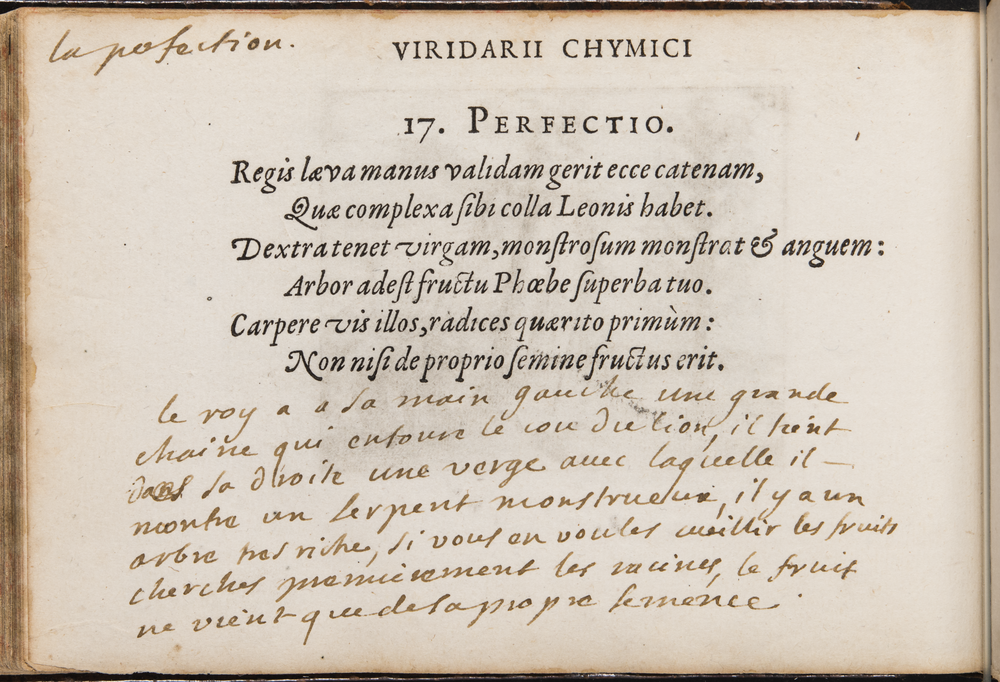 la perfection.
VIRIDARII CHYMICI
17. PERFECTIO.
Regis læva manus validam gerit ecce catenam,
Quæ complexa ſibi colla Leonis habet.
Dextra tenet virgam, monſtroſum monſtrat & anguem:
Arbor adeſt fructu Phœbe ſuperba tuo.
Carpere vis illos, radices quærito primùm:
Non niſi de proprio ſemine fructus erit.
le roy a a sa main gauche une grande
chaine qui entoure le cou du lion, il tient
dans sa droite une verge avec laquelle il
montre un serpent monstrueux, il y a un
arbre tres riche, si vous en voules cueillir les fruits
cherches premierement les racines, le fruit
ne vient que de sa propre semence.